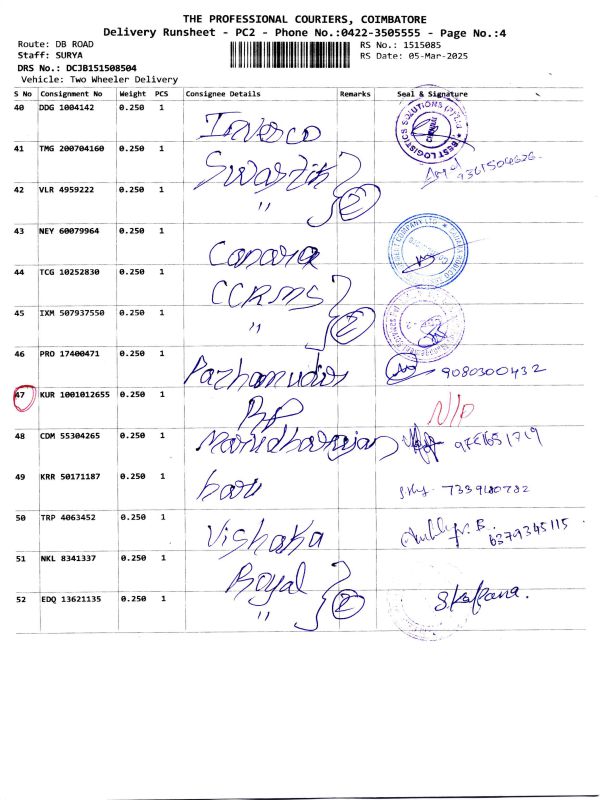 THE PROFESSIONAL COURIERS, COIMBATORE
Delivery Runsheet - PC2 - Phone No.:0422-3505555 - Page No.:4
Route: DB ROAD
RS No.: 1515085
Staff: SURYA
RS Date: 05-Mar-2025
DRS No.: DCJB151508504
Vehicle: Two Wheeler Delivery
S No Consignment No Weight PCS Consignee Details Remarks Seal & Signature
40 DDG 1004142 0.250 1 Invesco
41 TMG 200704160 0.250 1 Swastik
42 VLR 4959222 0.250 1 " 2
43 NEY 60079964 0.250 1 Canara
44 TCG 10252830 0.250 1 CCRMS
45 IXM 507937550 0.250 1 " 2
46 PRO 17400471 0.250 1 Pazhamudir 9080300432
47 KUR 1001012655 0.250 1 RP N/D
48 CDM 55304265 0.250 1
49 KRR 50171187 0.250 1
50 TRP 4063452 0.250 1 Vishaka 6379345115
51 NKL 8341337 0.250 1 Royal
52 EDQ 13621135 0.250 1 " 2 S.Kalpana.